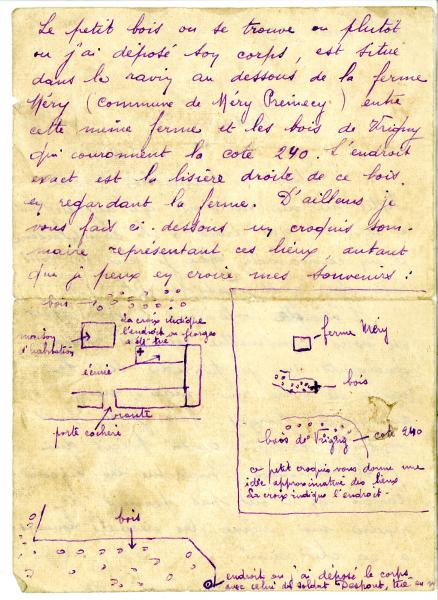 Le petit bois ou se trouve ou plutôt
ou j'ai déposé soy corps, est situé
dans le raviy au dessous de la ferme
Méry (Commune de Méry Prémecy.) entre
cette même ferme et les bois de Vrigny
qui couronnent la cote 240. L'endroit
exact est la lisière droite de ce bois
ey regardant la ferme. D'ailleurs je
vous fais ci-dessous uy croquis som-
maire représentant ces lieux, autant
que je peux ey croire mes souvenirs :
bois
maisoy
d'habitation
La croix indique
l'endroit ou georges
a été tué
écurie
route
porte cochère
ferme Méry
bois
bois de Vrigny
cote 240
ce petit croquis vous donne une
idée approximative des lieux
La croix indique l'endroit.
bois
endroit ou j'ai déposé le corps
avec celui du soldat Despont, tué en